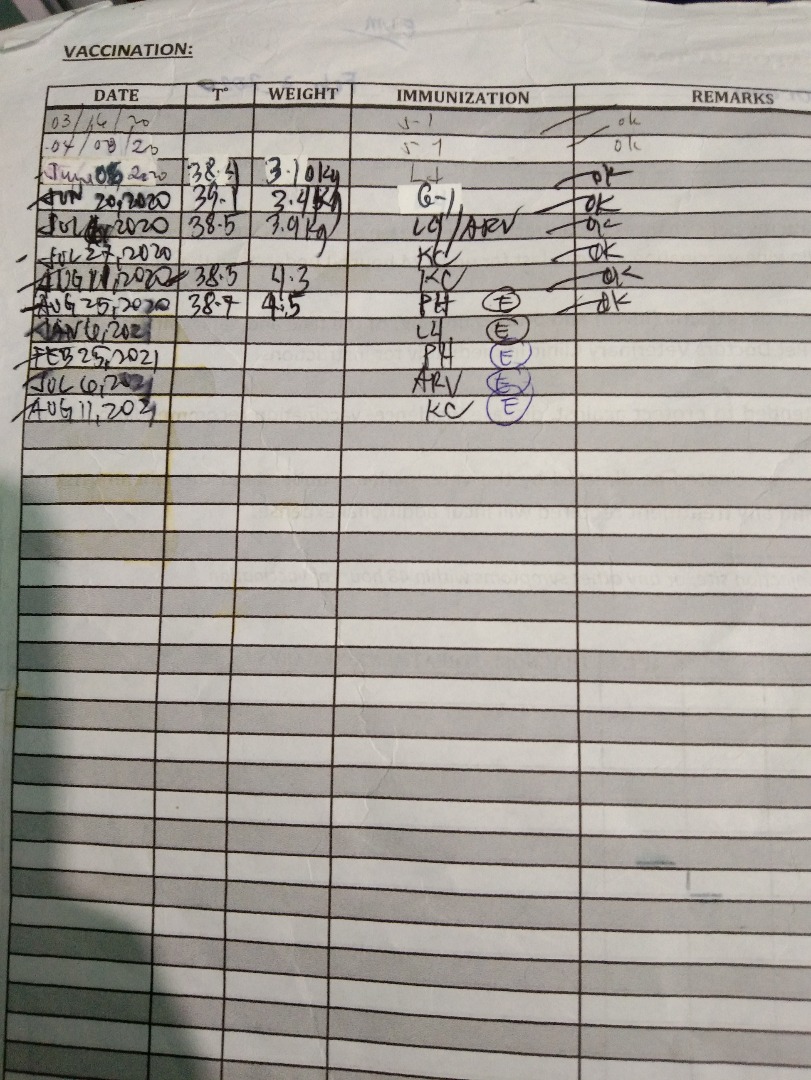 VACCINATION:
DATE T° WEIGHT IMMUNIZATION REMARKS
03/16/20 5-1 ok
04/08/20 5-1 ok
June 05, 2020 38.5 3.10kg L4 ok
JUN 20, 2020 39.1 3.4kg 6-1 OK
JUL 6, 2020 38.5 3.9kg L4/ARV ok
JUL 27, 2020 KC OK
AUG 11, 2020 38.5 4.3 KC OK
AUG 25, 2020 38.7 4.5 PH E OK
JAN 6, 2021 L4 E
FEB 25, 2021 PH E
JUL 6, 2021 ARV E
AUG 11, 2021 KC E